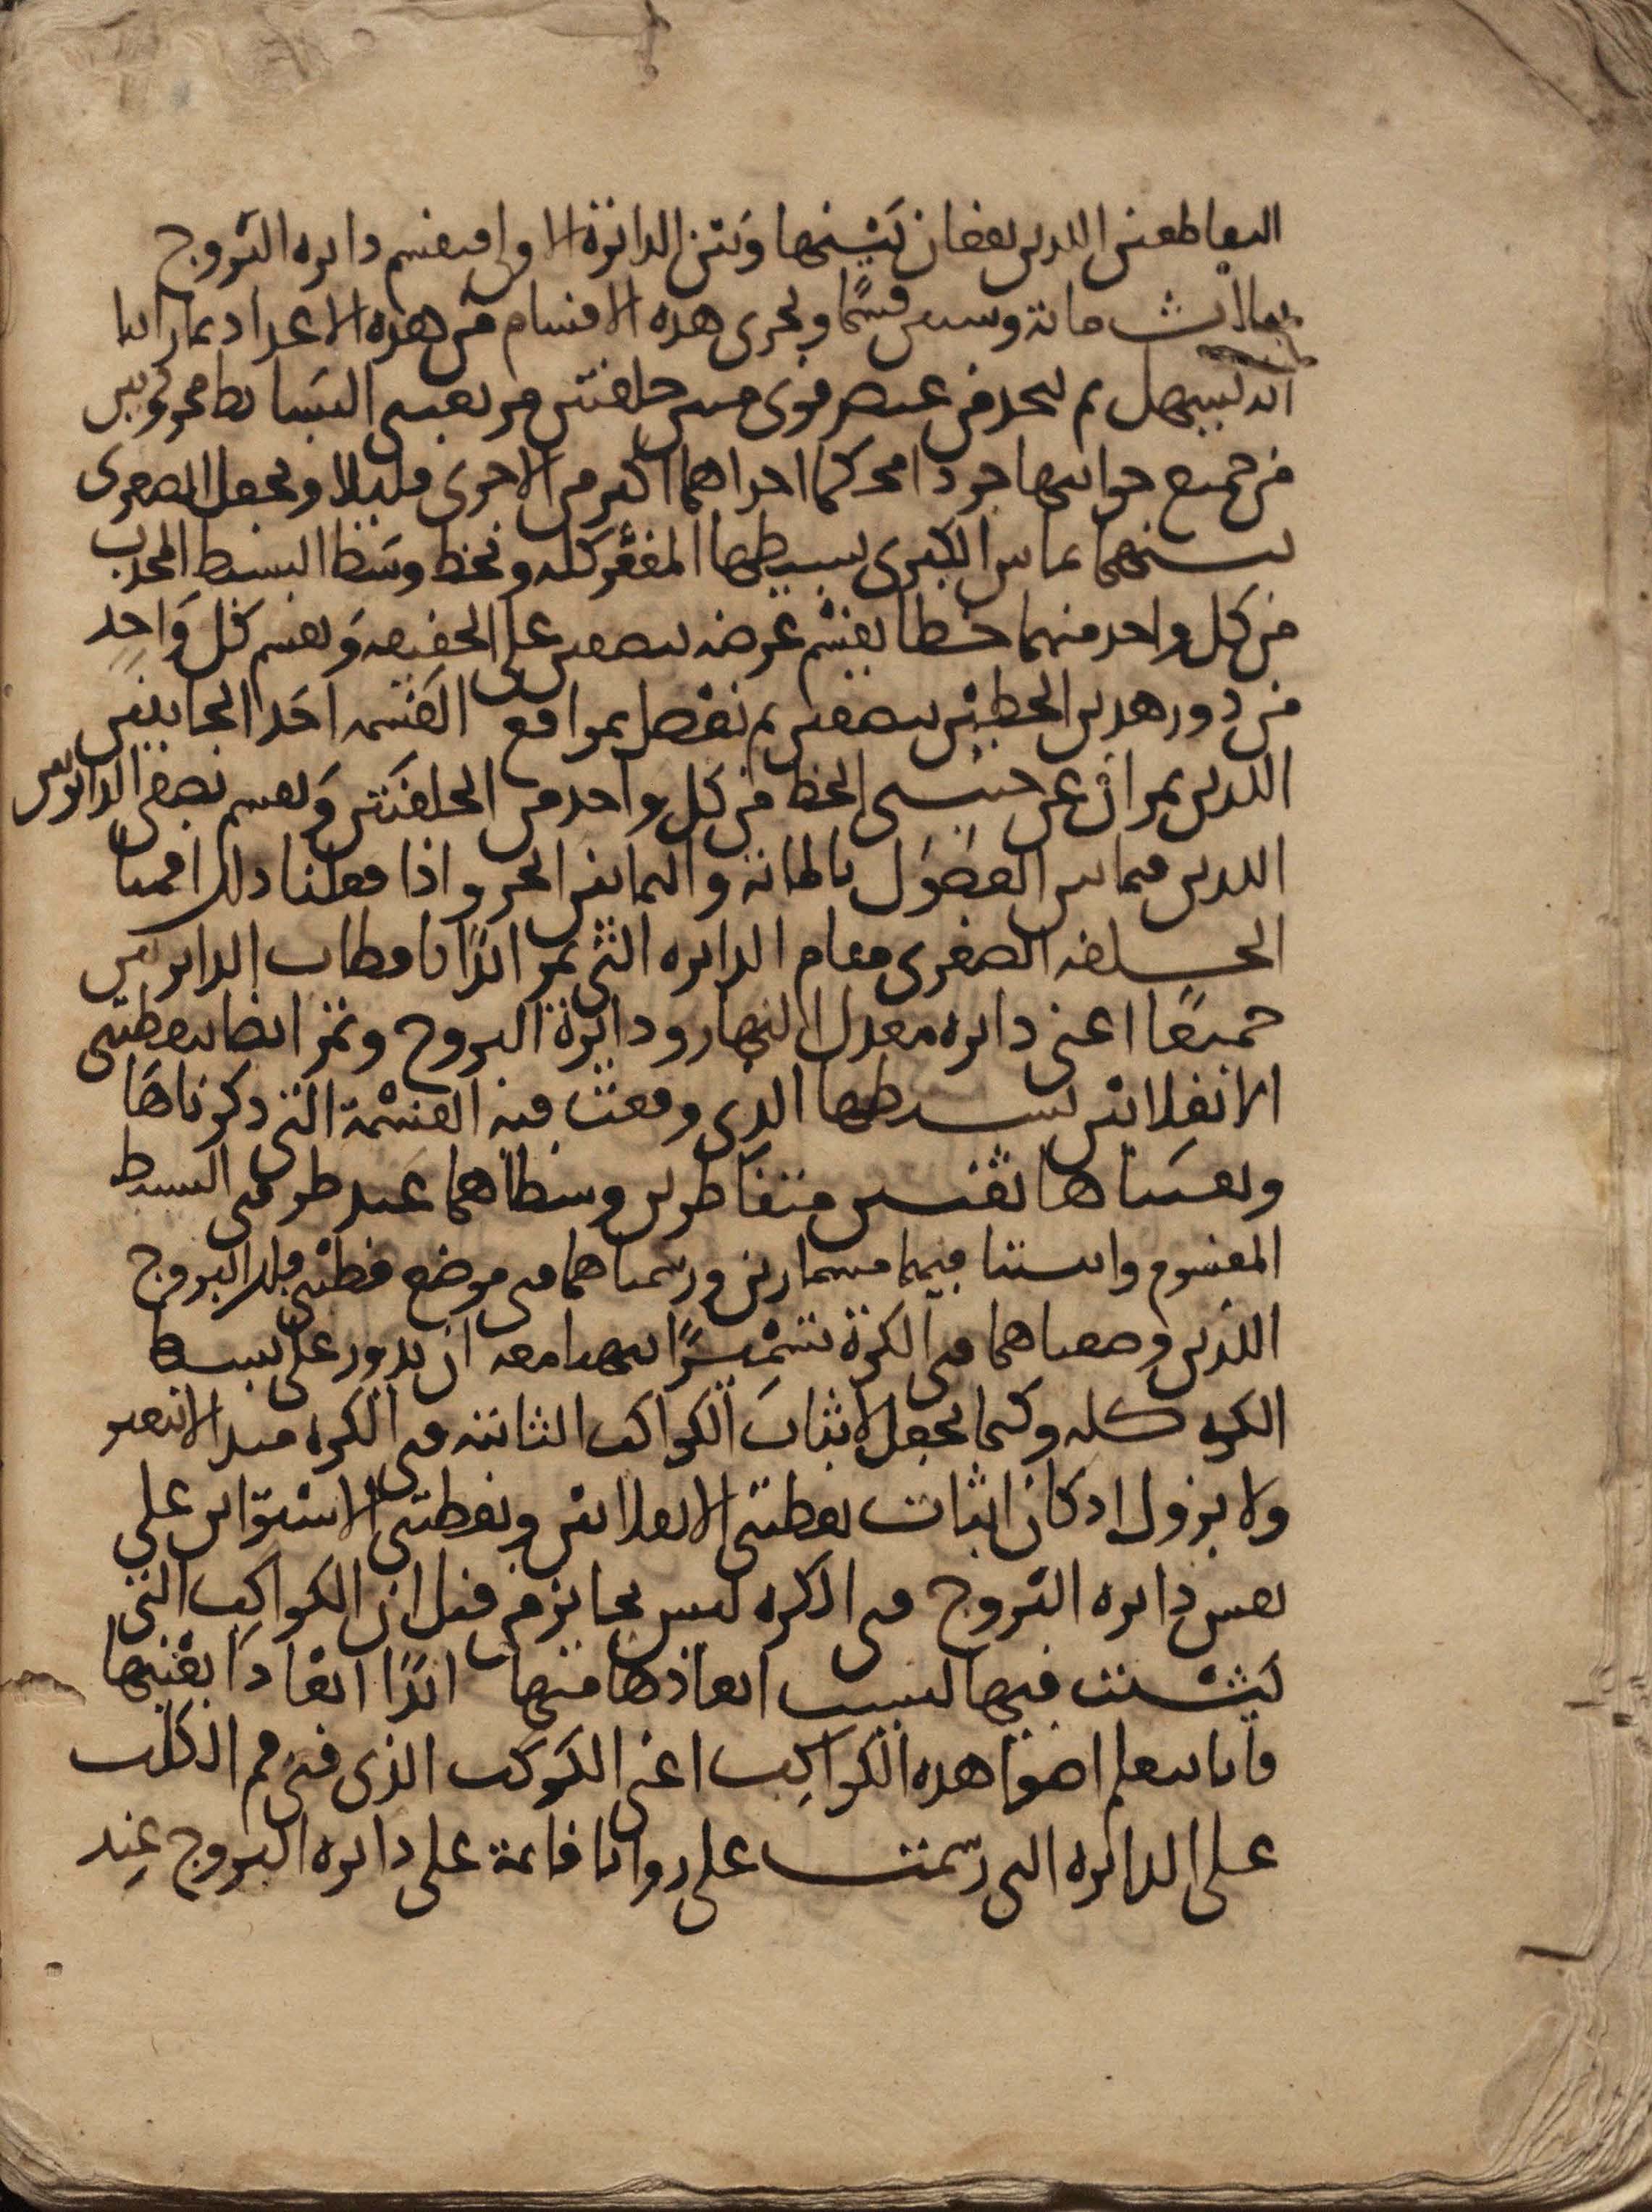 التقاطعين اللذين يقعان بينها وبين الدائرة الاولى فنقسم دايره البروج
بثلاث مائة وستين قسمًا ونجرى هذه الاقسام من هذه الاعداد بما راينا
انه يسهل ثم نتخذ من عنصر قوى متين حلقتين مربعتى البسايط مجرودتين
من جميع جوانبها جردا محكما احداهما اكبر من الاخرى قليلا ونجعل الصغرى
منهما تماس الكبرى ببسيطها المقعر كله ونخط وسط البسيط المحدب
من كل واحد منهما خطا يقسم عرضه بنصفين على الحقيقه ونقسم كل واحد
من دور هذين الخطين بنصفين ثم نفصل بمواقع القسمه احد الجانبين
اللذين يمران عن جنبى الخط من كل واحد من الحلقتين ونقسم نصفى الدائرتين
اللذين فيما بين الفضول بالمائة والثمانين الجزو اذا فعلنا ذلك اقمنا
الحلقه الصغرى مقام الدايره التى تمر ابدًا باقطاب الدايرتين
جميعًا اعنى دايره معدل النهار ودايرة البروج وتمر ايضا بنقطتى
الانقلابين ببسيطها الذى وقعت فيه القسمة التى ذكرناها
ونقبناها نقبين متقاطرين وسطاهما عند طرفى البسيط
المقسوم واثبتنا فيهما مسمارين ورسمناهما فى موضع قطبى فلك البروج
اللذين وضعناهما فى الكرة تسميرًا يتهيا معه ان يدور على بسيط
الكره كله وكيما نجعل لاثبات الكواكب الثابته فى الكره مبدا لا يتغير
ولا يزول اذ كان اثبات نقطتى الانقلابين ونقطتى الاستوائين على
نفس دايره البروج فى الكره ليس بجايز من قبل ان الكواكب التى
تثبت فيها ليست ابعادها منها ابدًا ابعادا بعينها
فانا نعلم اضوا هذه الكواكب اعنى الكوكب الذى فى فم الكلب
على الدائره التى رسمت على زوايا قائمة على دايره البروج عند